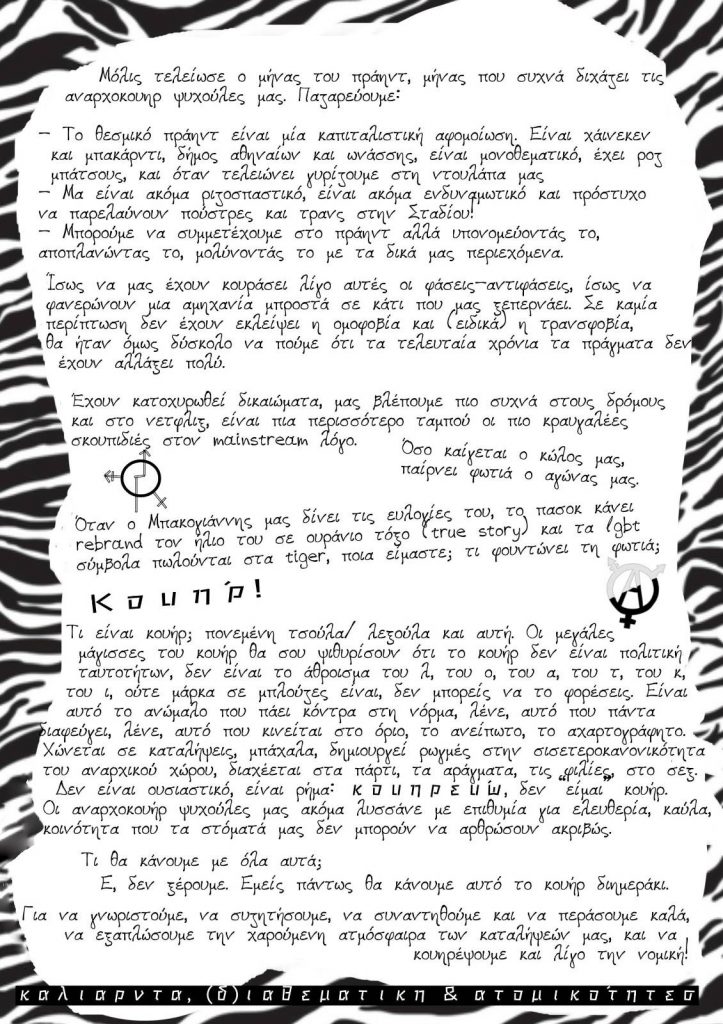 Μόλις τελείωσε ο μήνας του πράηντ, μήνας που συχνά διχάζει τις
αναρχοκουηρ ψυχούλες μας. Παζαρεύουμε:
- Το θεσμικό πράηντ είναι μία καπιταλιστική αφομοίωση. Είναι χάινεκεν
και μπακάρντι, δήμος αθηναίων και ωνάσσης, είναι μονοθεματικό, έχει ροζ
μπάτσους, και όταν τελειώνει γυρίζουμε στη ντουλάπα μας
- Μα είναι ακόμα ριζοσπαστικό, είναι ακόμα ενδυναμωτικό και πρόστυχο
να παρελαύνουν πούστρες και τρανς στην Σταδίου!
- Μπορούμε να συμμετέχουμε στο πράηντ αλλά υπονομεύοντάς το,
αποπλανώντας το, μολύνοντάς το με τα δικά μας περιεχόμενα.
Ίσως να μας έχουν κουράσει λίγο αυτές οι φάσεις-αντιφάσεις, ίσως να
φανερώνουν μια αμηχανία μπροστά σε κάτι που μας ξεπερνάει. Σε καμία
περίπτωση δεν έχουν εκλείψει η ομοφοβία και (ειδικά) η τρανσφοβία,
θα ήταν όμως δύσκολο να πούμε ότι τα τελευταία χρόνια τα πράγματα δεν
έχουν αλλάξει πολύ.
Έχουν κατοχυρωθεί δικαιώματα, μας βλέπουμε πιο συχνά στους δρόμους
και στο νετφλιξ, είναι πια περισσότερο ταμπού οι πιο κραυγαλέες
σκουπιδιές στον mainstream λόγο.
Όσο καίγεται ο κώλος μας,
παίρνει φωτιά ο αγώνας μας.
Όταν ο Μπακογιάννης μας δίνει τις ευλογίες του, το πασοκ κάνει
rebrand τον ήλιο του σε ουράνιο τόξο (true story) και τα lgbt
σύμβολα πωλούνται στα tiger, ποια είμαστε; τι φουντώνει τη φωτιά;
Κουηρ!
Τι είναι κουήρ; πονεμένη τσούλα/ λεξούλα και αυτή. Οι μεγάλες
μάγισσες του κουήρ θα σου ψιθυρίσουν ότι το κουήρ δεν είναι πολιτική
ταυτοτήτων, δεν είναι το άθροισμα του λ, του ο, του α, του τ, του κ,
του ι, ούτε μάρκα σε μπλούζες είναι, δεν μπορείς να το φορέσεις. Είναι
αυτό το ανώμαλο που πάει κόντρα στη νόρμα, λένε, αυτό που πάντα
διαφεύγει, λένε, αυτό που κινείται στο όριο, το ανείπωτο, το αχαρτογράφητο.
Χώνεται σε καταλήψεις, μπάχαλα, δημιουργεί ρωγμές στην σισετεροκανονικότητα
του αναρχικού χώρου, διαχέεται στα πάρτι, τα αράγματα, τις φιλίες, στο σεξ.
Δεν είναι ουσιαστικό, είναι ρήμα: κουηρεύω, δεν "είμαι" κουήρ.
Οι αναρχοκουήρ ψυχούλες μας ακόμα λυσσάνε με επιθυμία για ελευθερία, καύλα,
κοινότητα που τα στόματά μας δεν μπορούν να αρθρώσουν ακριβώς.
Τι θα κάνουμε με όλα αυτά;
Ε, δεν ξέρουμε. Εμείς πάντως θα κάνουμε αυτό το κουήρ διημεράκι.
Για να γνωριστούμε, να συζητήσουμε, να συναντηθούμε και να περάσουμε καλά,
να εξαπλώσουμε την χαρούμενη ατμόσφαιρα των καταλήψεών μας, και να
κουηρέψουμε και λίγο την νομική!
καλιαρντα, (δ)ιαθεματικη & ατομικότητες